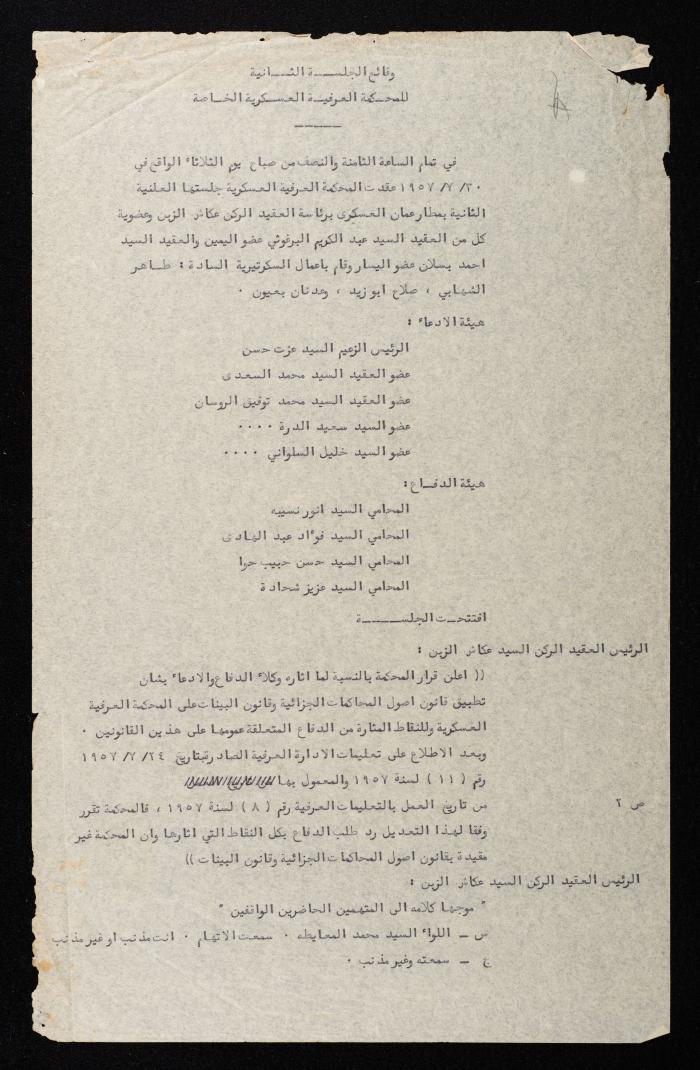 وقائع الجلسة الثانية
للمحكمة العرفية العسكرية الخاصة
في تمام الساعة الثامنة والنصف من صباح يوم الثلاثاء الواقع في
٣٠ /٧ /١٩٥٧ عقدت المحكمة العرفية العسكرية جلستها العلنية
الثانية بمطار عمان العسكرى برئاسة العقيد الركن عكاش الزبن وعضوية
كل من العقيد السيد عبد الكريم البرغوثي عضو اليمين والعقيد السيد
احمد بسلان عضو اليسار وقام باعمال السكرتيرية السادة : طاهر
الشهابي ، صلاح ابو زيد ، وعدنان بعيون .
هيئة الادعاء :
الرئيس الزعيم السيد عزت حسن
عضو العقيد السيد محمد السعدى
عضو العقيد السيد محمد توفيق الروسان
عضو السيد سعيد الدرة ....
عضو السيد خليل السلواني ....
هيئة الدفاع :
المحامي السيد انور نسيبه
المحامي السيد فوءاد عبد الهادى
المحامي السيد حسن حبيب حوا
المحامي السيد عزيز شحادة
افتتحت الجلسة
الرئيس العقيد الركن السيد عكاش الزبن :
(( اعلن قرار المحكمة بالنسبة لما اثاره وكلاء الدفاع والادعاء بشان
تطبيق قانون اصول المحاكمات الجزائية وقانون البينات على المحكمة العرفية
العسكرية وللنقاط المثارة من الدفاع المتعلقة عمومها على هذين القانونين .
وبعد الاطلاع على تعليمات الادارة العرفية الصادرة بتاريخ ٢٤ /٧ /١٩٥٧
رقم ( ١١ ) لسنة ١٩٥٧ والمعمول بها
من تاريخ العمل بالتعليمات العرفية رقم ( ٨ ) لسنة ١٩٥٧ ، فالمحكمة تقرر
ص ٢
وفقا لهذا التعديل رد طلب الدفاع بكل النقاط التي اثارها وان المحكمة غير
مقيدة بقانون اصول المحاكمات الجزائية وقانون البينات ))
الرئيس العقيد الركن السيد عكاش الزبن :
" موجها كلامه الى المتهمين الحاضرين الواقفين "
س ـ اللواء السيد محمد المعايطه . سمعت الاتهام . انت مذنب او غير مذنب
ج ـ سمعته وغير مذنب .